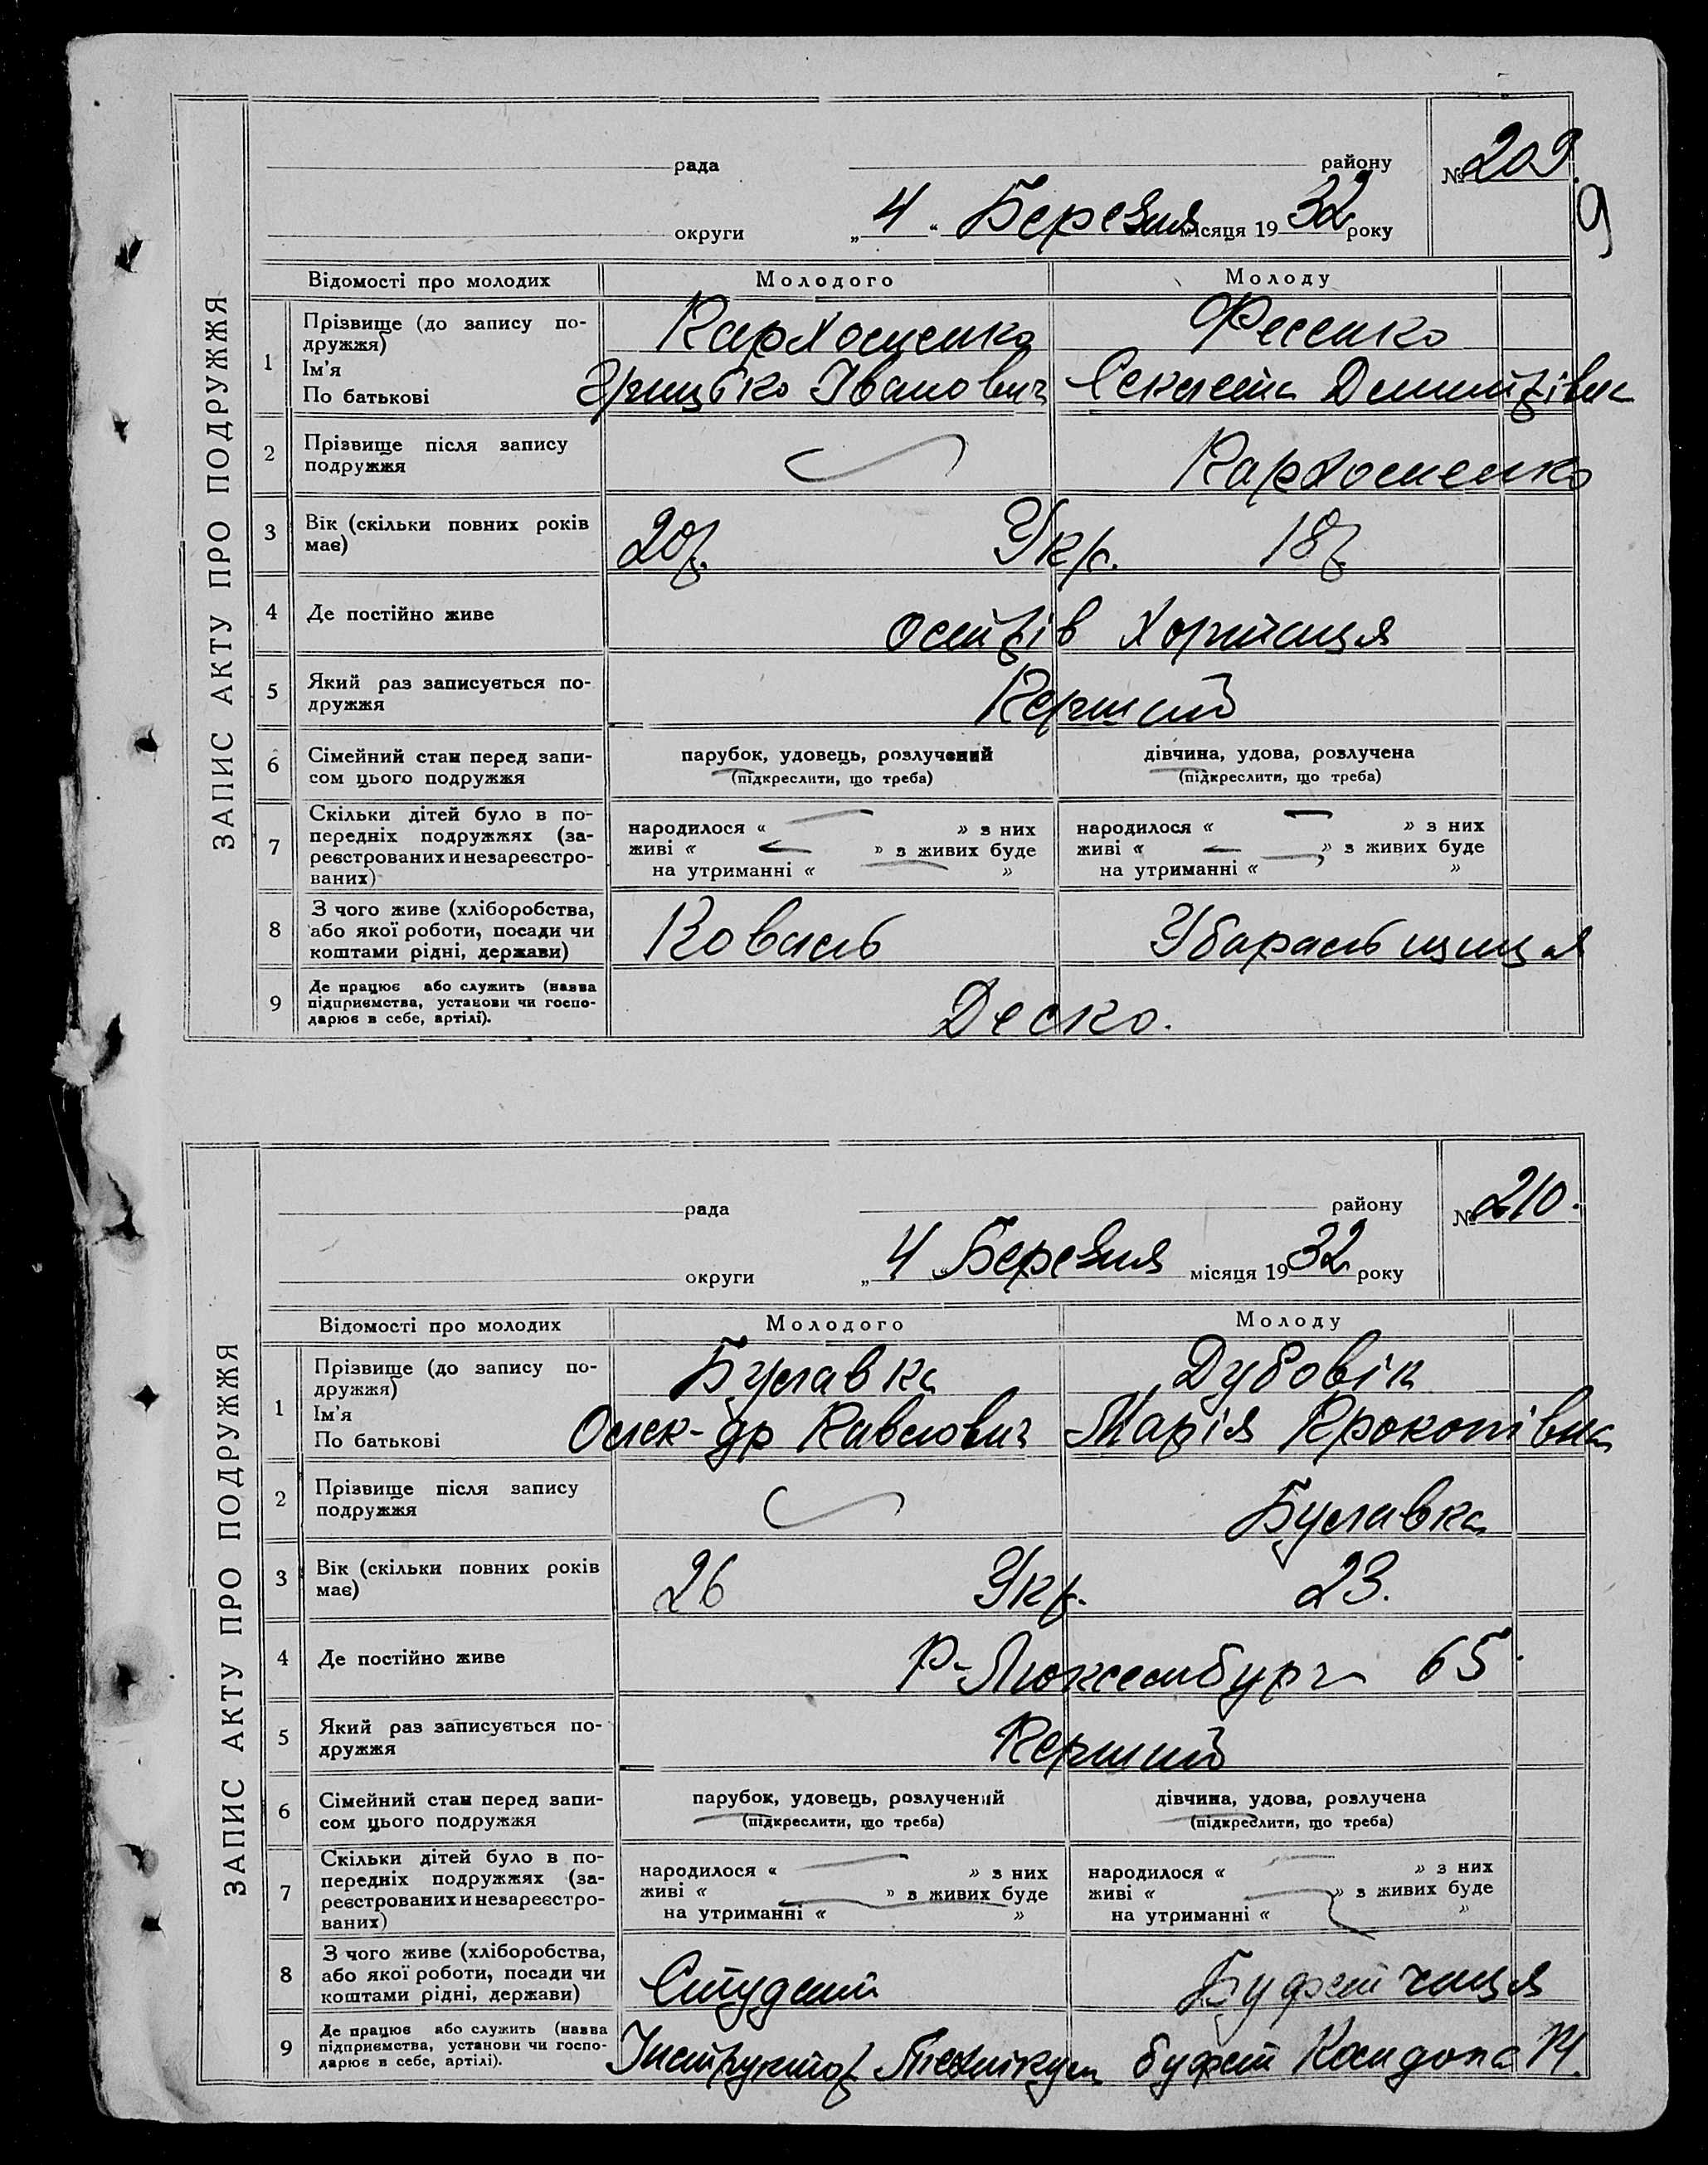 ЗАПИС АКТУ ПРО ПОДРУЖЖЯ
рада району №209.
9
округи „4“ Березня місяця 1932 року
Відомості про молодих Молодого Молоду
1 Прізвище (до запису по-
дружжя)
Ім'я
По батькові
Фесенко
Грицько Іванович Дмитрівна
2 Прізвище після запису
подружжя
3 Вік (скільки повних років
має)
20р. Укр. 18р.
4 Де постійно живе
острів Хортиця
5 Який раз записується по-
дружжя
Перший
6 Сімейний стан перед запи-
сом цього подружжя
парубок, удовець, розлучений
(підкреслити, що треба)
дівчина, удова, розлучена
(підкреслити, що треба)
7 Скільки дітей було в по-
передніх подружжях (за-
реєстрованих и незареєстро-
ваних)
народилося « » з них
живі « » з живих буде
на утриманні « »
народилося « » з них
живі « » з живих буде
на утриманні « »
8 З чого живе (хліборобства,
або якої роботи, посади чи
коштами рідні, держави)
Коваль
9 Де працює або служить (назва
підприємства, установи чи госпо-
дарює в себе, артілі).
ЗАПИС АКТУ ПРО ПОДРУЖЖЯ
рада району №210.
округи „4“ Березня місяця 1932 року
Відомості про молодих Молодого Молоду
1 Прізвище (до запису по-
дружжя)
Ім'я
По батькові
Булавка Дубовік
Олек-др Павлович Марія Прокопівна
2 Прізвище після запису
подружжя
Булавка
3 Вік (скільки повних років
має)
26 Укр. 23.
4 Де постійно живе
Р-Люксембург 65
5 Який раз записується по-
дружжя
Перший
6 Сімейний стан перед запи-
сом цього подружжя
парубок, удовець, розлучений
(підкреслити, що треба)
дівчина, удова, розлучена
(підкреслити, що треба)
7 Скільки дітей було в по-
передніх подружжях (за-
реєстрованих и незареєстро-
ваних)
народилося « » з них
живі « » з живих буде
на утриманні « »
народилося « » з них
живі « » з живих буде
на утриманні « »
8 З чого живе (хліборобства,
або якої роботи, посади чи
коштами рідні, держави)
Студент Буфетчиця
9 Де працює або служить (назва
підприємства, установи чи госпо-
дарює в себе, артілі).
Інструктор Технікум буфет